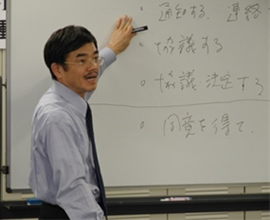 ・通知する、連絡
・協議する
・協議 決定する
・同意を得て、